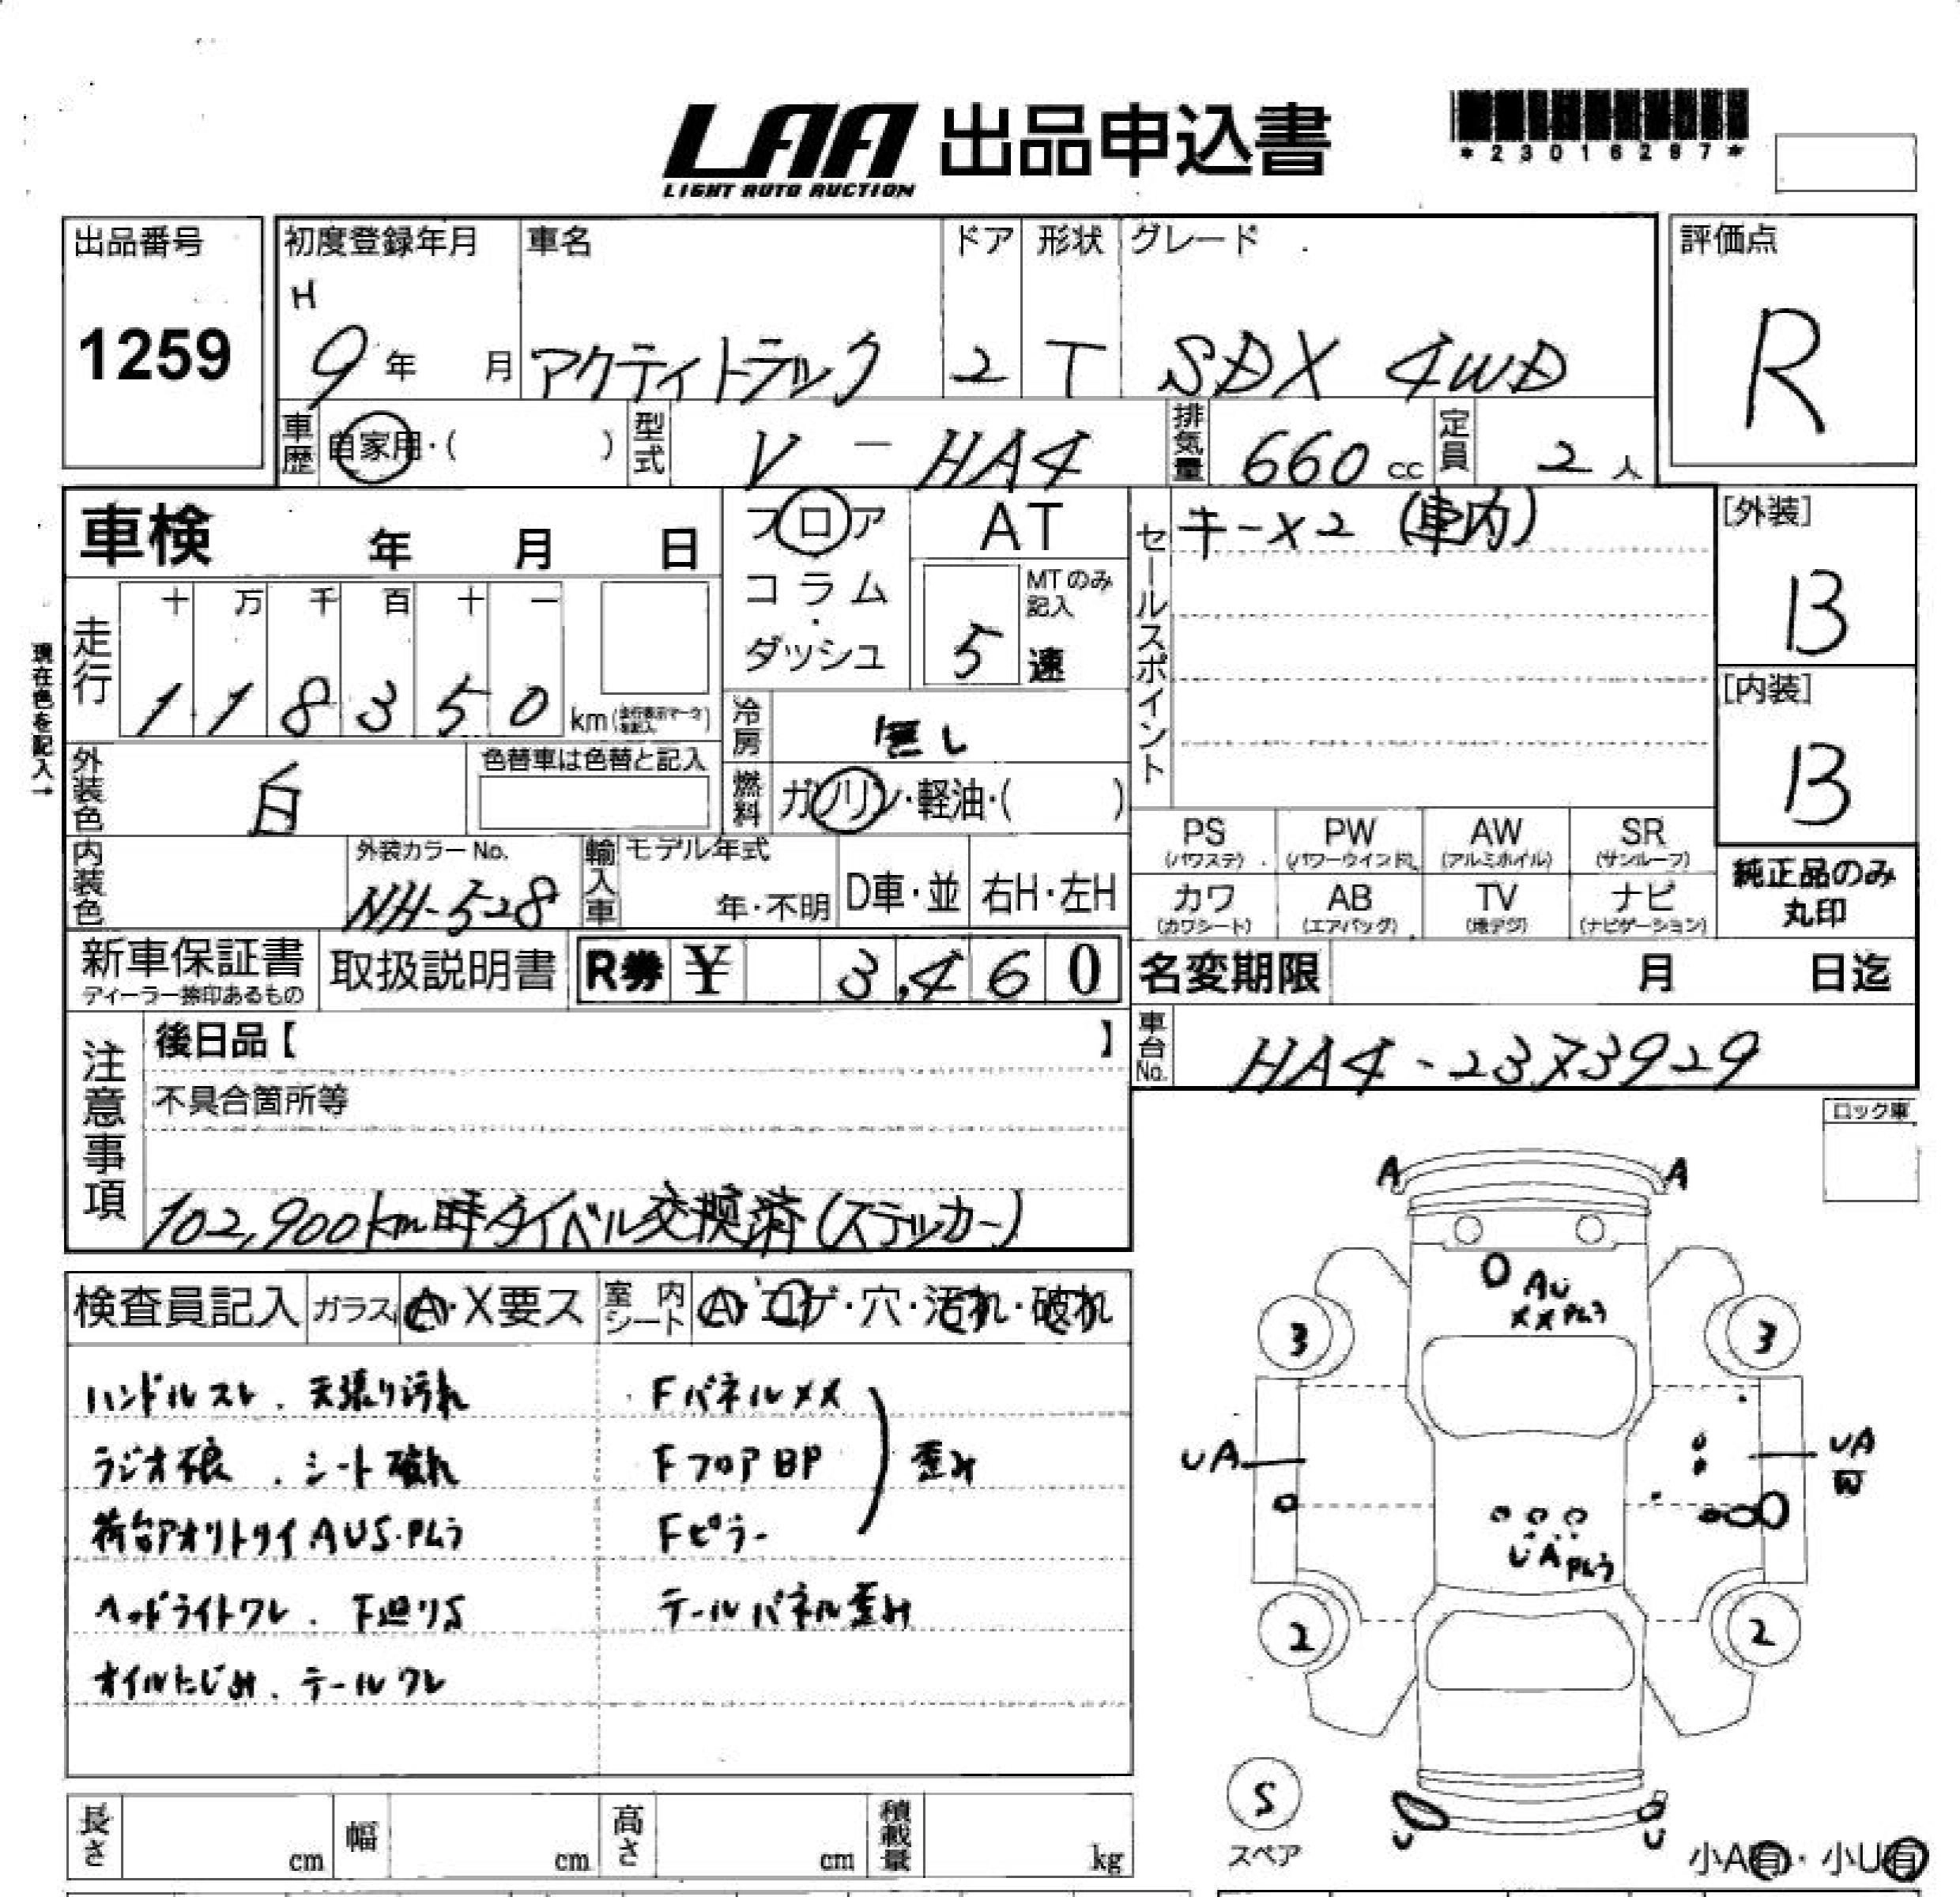 LAA 出品申込書
LIGHT AUTO AUCTION
*23016297*
出品番号
1259
初度登録年月 車名 ドア 形状 グレード
H
9年 月 アクティトラック 2 T SDX 4WD
評価点
R
車歴 自家用・( ) 型式 V-HA4 排気量 660cc 定員 2人
車検 年 月 日
フロア
コラム
・
ダッシュ
AT
MTのみ記入
5速
走行
十 万 千 百 十 一
1 1 8 3 5 0 km
現在色を記入→
外装色 白
色替車は色替と記入
冷房 無し
燃料 ガソリン・軽油・( )
内装色
外装カラーNo.
NH-528
輸入車 モデル年式
年・不明 D車・並 右H・左H
セールスポイント
キーx2(車内)
[外装]
B
[内装]
B
PS (パワステ) PW (パワーウインド) AW (アルミホイル) SR (サンルーフ)
カワ (カワシート) AB (エアバッグ) TV (地デジ) ナビ (ナビゲーション)
純正品のみ
丸印
新車保証書
ディーラー捺印あるもの
取扱説明書
R券 ¥ 3,460
名変期限 月 日迄
車台No. HA4-2373929
注意事項
後日品【 】
不具合箇所等
102,900km時タイベル交換済(ステッカー)
ロック車
検査員記入 ガラス A・X要ス 室内シート A・コゲ・穴・汚れ・破れ
ハンドルスレ. 天張り汚れ
ラジオ破. シート破れ
荷台アオリトリイAUS.Pムラ
ヘッドライトワレ. 下廻りS
オイルにじみ. テールワレ
FパネルXX
FフロアBP
Fピラー
歪み
テールパネル歪み
A A
AU
XXPムラ
3 3
UA
UA
W
UAPムラ
2 2
S
スペア
U U
小A有・小U有
長さ cm 幅 cm 高さ cm 積載量 kg